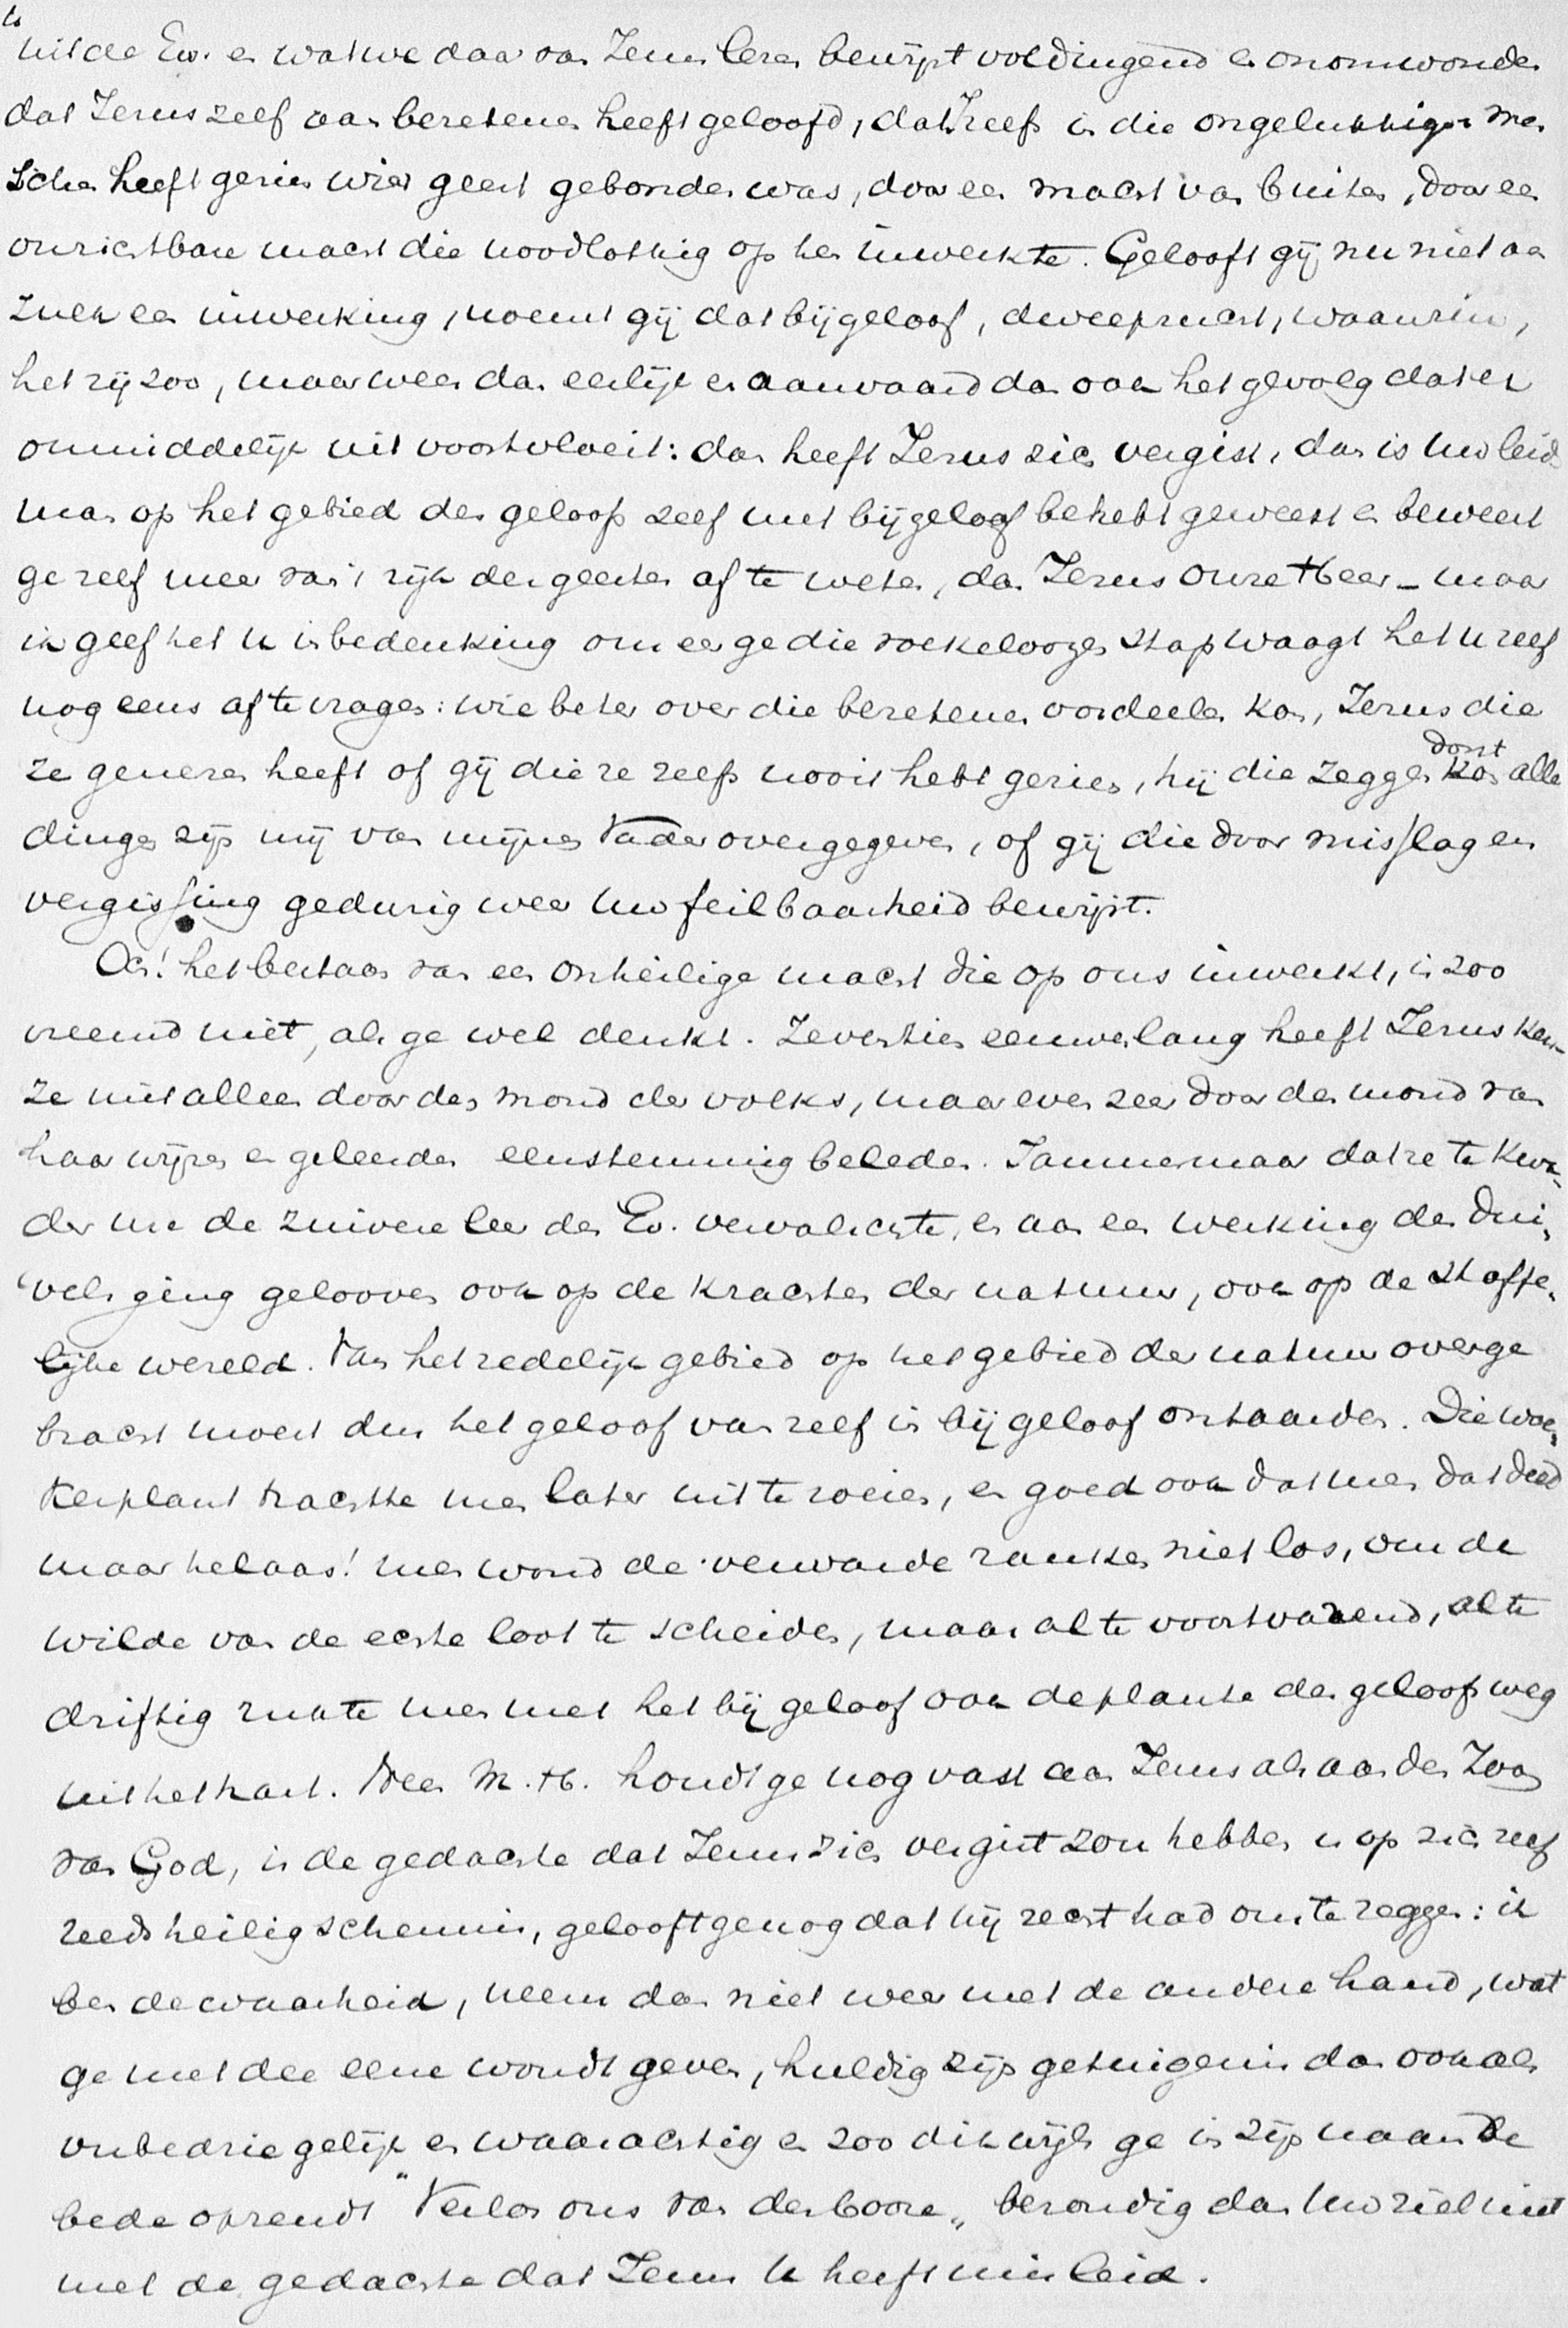 uit de Ev. en wat we daar van Jezus lezen bewijst voldingend en onomwonden
dat Jezus zelf aan bezetenen heeft geloofd, dat J. zelf in die ongelukkigen men
schen heeft gezien wier geest gebonden was, door een macht van buiten, door een
onzichtbare macht die noodlottig op hen inwerkte. Gelooft gij nu niet aan
zulk een inwerking, noemt gij dat bijgeloof, dweepzucht, waanzin,
het zij zoo, maar wees dan eerlijk en aanvaard dan ook het gevolg dat er
onmiddelijk uit voortvloeit: dan heeft Jezus zich vergist, dan is uw leids
man op het gebied des geloofs zelf met bijgeloof behebt geweest en beweert
ge zelf meer van 't rijk der geesten af te weten, dan Jezus onze Heer – maar
ik geef het u in bedenking om eer ge die roekeloozen stap waagt het u zelf
nog eens af te vragen: wie beter over die bezetenen oordeelen kon, Jezus die
ze genezen heeft of gij die ze zelfs nooit hebt gezien, hij die zeggen kon dorst alle
dingen zijn mij van mijnen Vader overgegeven, of gij die door misslag en
vergissing gedurig weer uw feilbaarheid bewijst.
Och! het bestaan van een onheilige macht die op ons inwerkt, is zoo
vreemd niet, als ge wel denkt. Zeventien eeuwen lang heeft Jezus ker-
ke niet alleen door den mond des volks, maar even zeer door den mond van
haar wijzen en geleerden eenstemmig beleden. Jammer maar dat ze te kwa-
der ure de zuivere leer des Ev. vervalschte, en aan een werking des dui-
vels ging gelooven ook op de krachten der natuur, ook op de stoffe-
lijke wereld. Van het redelijk gebied op het gebied der natuur overge
bracht moest dus het geloof van zelf in bijgeloof ontaarden. Die woe-
kerplant trachtte men later uit te roeien, en goed ook dat men dat deed
maar helaas! men wond de verwarde ranken niet los, om de
wilde van de echte loot te scheiden, maar al te voortvarend, al te
driftig rukte men met het bijgeloof ook de plante des geloofs weg
uit het hart. Neen M. H. houdt ge nog vast aan Jezus als aan den Zoon
van God, is de gedachte dat Jezus zich vergist zou hebben u op zich zelf
reeds heiligschennis, gelooft ge nog dat hij recht had om te zeggen: ik
ben de waarheid, neem dan niet weer met de andere hand, wat
ge met dee eene woudt geven, huldig zijn getuigenis dan ook als
onbedriegelijk en waarachtig en zoo dikwijls ge in zijn naam de
bede opzendt "Verlos ons van den booze„ bezondig dan uw ziel niet
met de gedachte dat Jezus u heeft misleid.